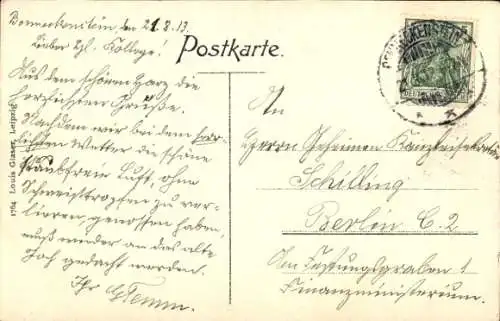 Benneckenstein, den 21.8.13.
Lieber Hl. Kollege!
Aus dem schönen Harz die
herzlichsten Grüße.
Nachdem wir bei dem herr-
lichsten Wetter die schöne
staubfreie Luft, ohne
Schweistropfen zu ver-
lieren, genossen haben,
muß wieder an das alte
Joch gedacht werden.
Ihr
Postkarte.
BENNECKENSTEIN
An
Herrn Geheimen Kanzleisekretär
Schilling
Berlin C. 2
Am Festungsgraben 1
Finanzministerium.
1764 Louis Glaser, Leipzig